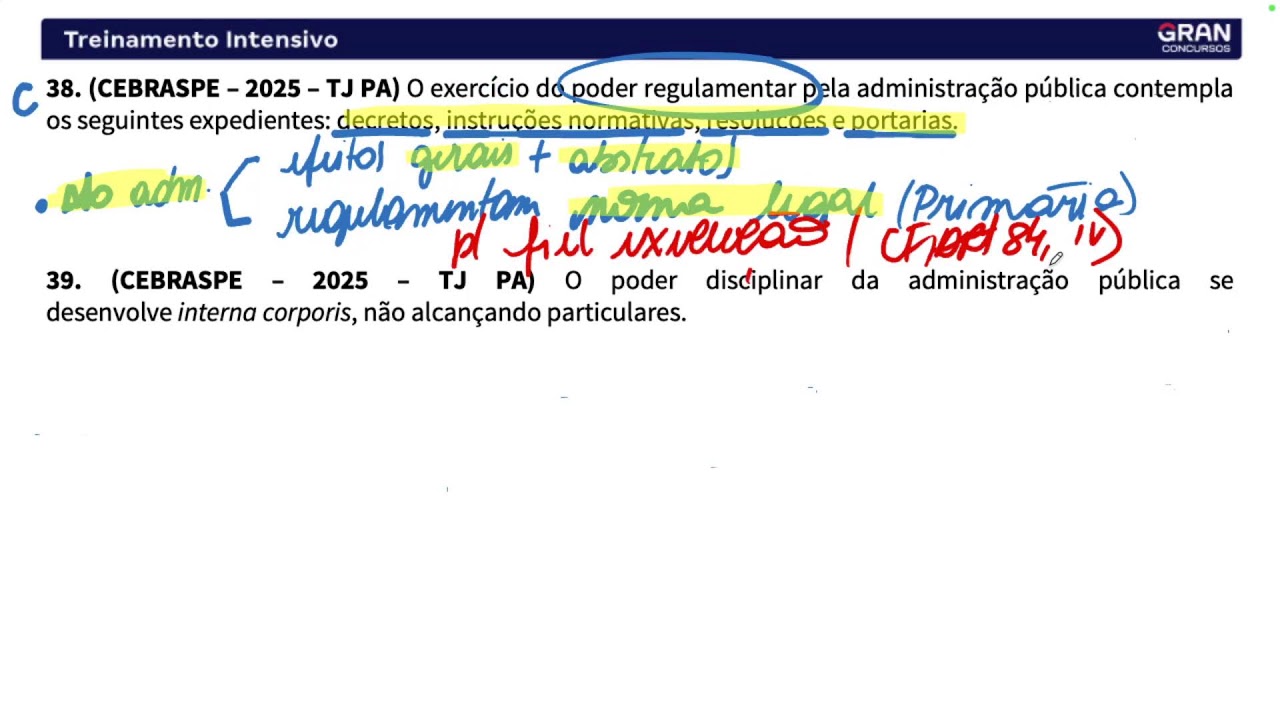 Treinamento Intensivo
GRAN
CONCURSOS
C 38. (CEBRASPE – 2025 – TJ PA) O exercício do poder regulamentar pela administração pública contempla
os seguintes expedientes: decretos, instruções normativas, resoluções e portarias.
efeitos gerais + abstratos
• Ato adm.
regulamentam norma legal (Primária)
p/ fiel execução / CF, art 84, IV)
39. (CEBRASPE – 2025 – TJ PA) O poder disciplinar da administração pública se
desenvolve interna corporis, não alcançando particulares.